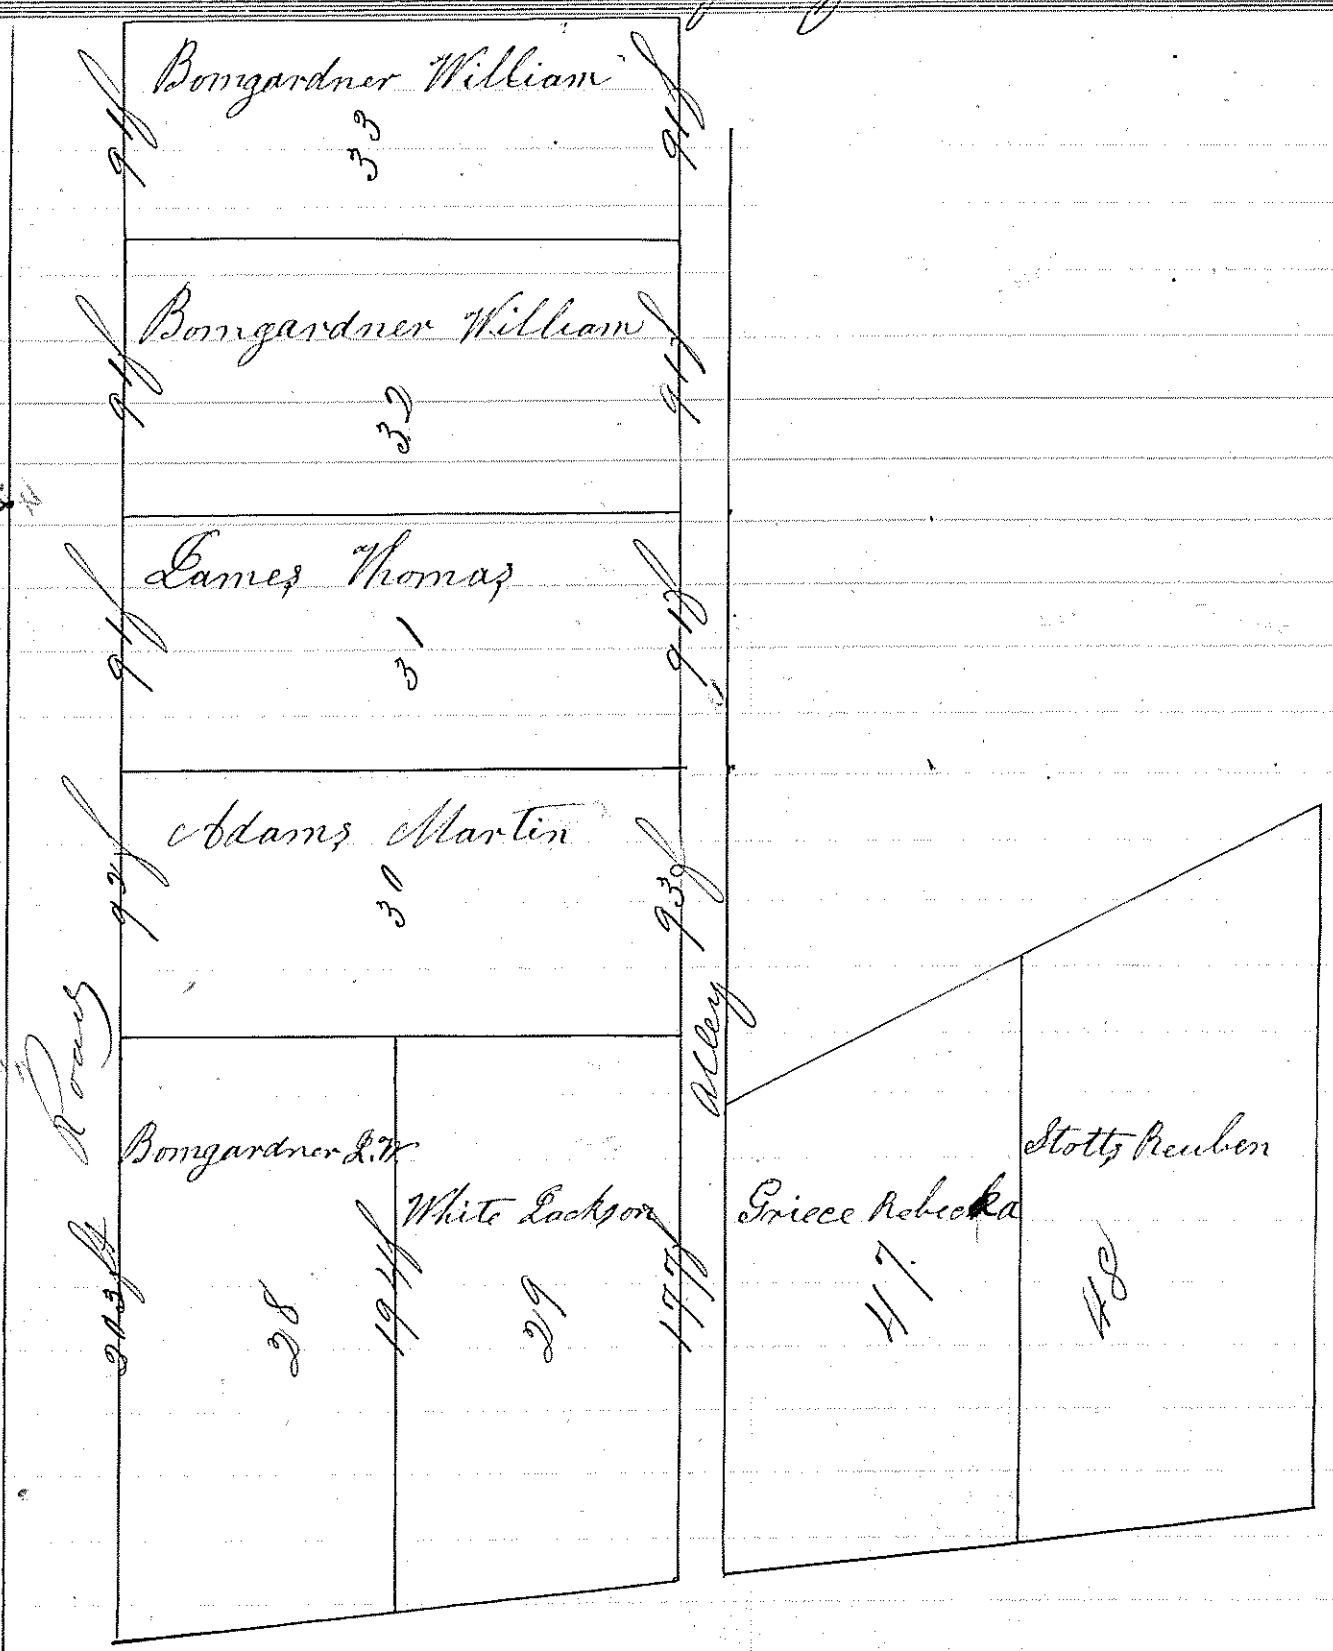 Bomgardner William
91f
33
91f
Bomgardner William
91f
32
91f
James Thomas
91f
31
91f
Adams Martin
93f
30
93f
Road
Alley
Bomgardner J.W.
203f
28
194f
White Jackson
29
177f
Griece Rebecka
47
Stotts Reuben
48